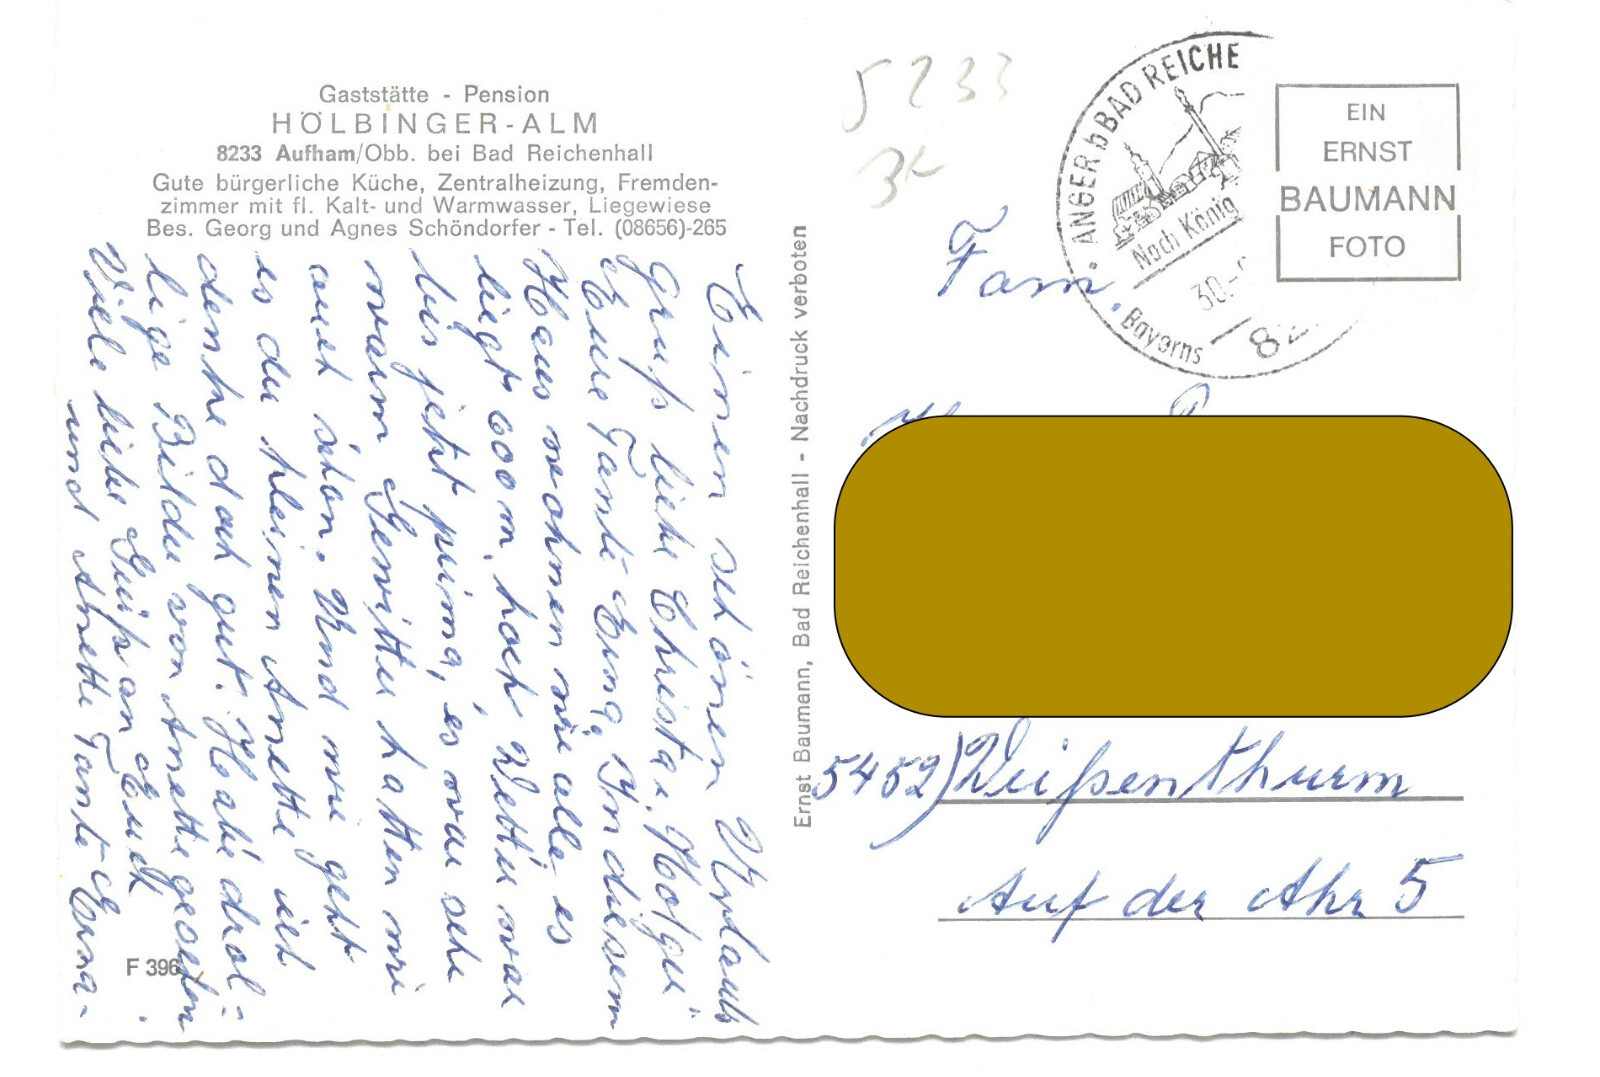 Gaststätte - Pension
HÖLBINGER-ALM
8233 Aufham/Obb. bei Bad Reichenhall
Gute bürgerliche Küche, Zentralheizung, Fremden-
zimmer mit fl. Kalt- und Warmwasser, Liegewiese
Bes. Georg und Agnes Schöndorfer - Tel. (08656)-265
Einen schönen Urlaubs
gruß liebe Christa, Holger
Eure Tante Erna. In diesem
Haus wohnen wir alle es
liegt 600 m, hoch Wetter war
bis jetzt prima, es war sehr
warm Gewitter hatten wir
auch schon. Und wie geht
es der kleinen Anette ich
denke doch gut. Habe drol=
lige Bilder von Anette gesehen.
Viele liebe Grüße an Euch
und Anette Tante Erna-
F 396
Ernst Baumann, Bad Reichenhall - Nachdruck verboten
5233
3k
ANGER b BAD REICHE
Noch König
30.-
Bayerns
82
EIN
ERNST
BAUMANN
FOTO
Fam.
5452) Weißenthurm
Auf der Ahr 5